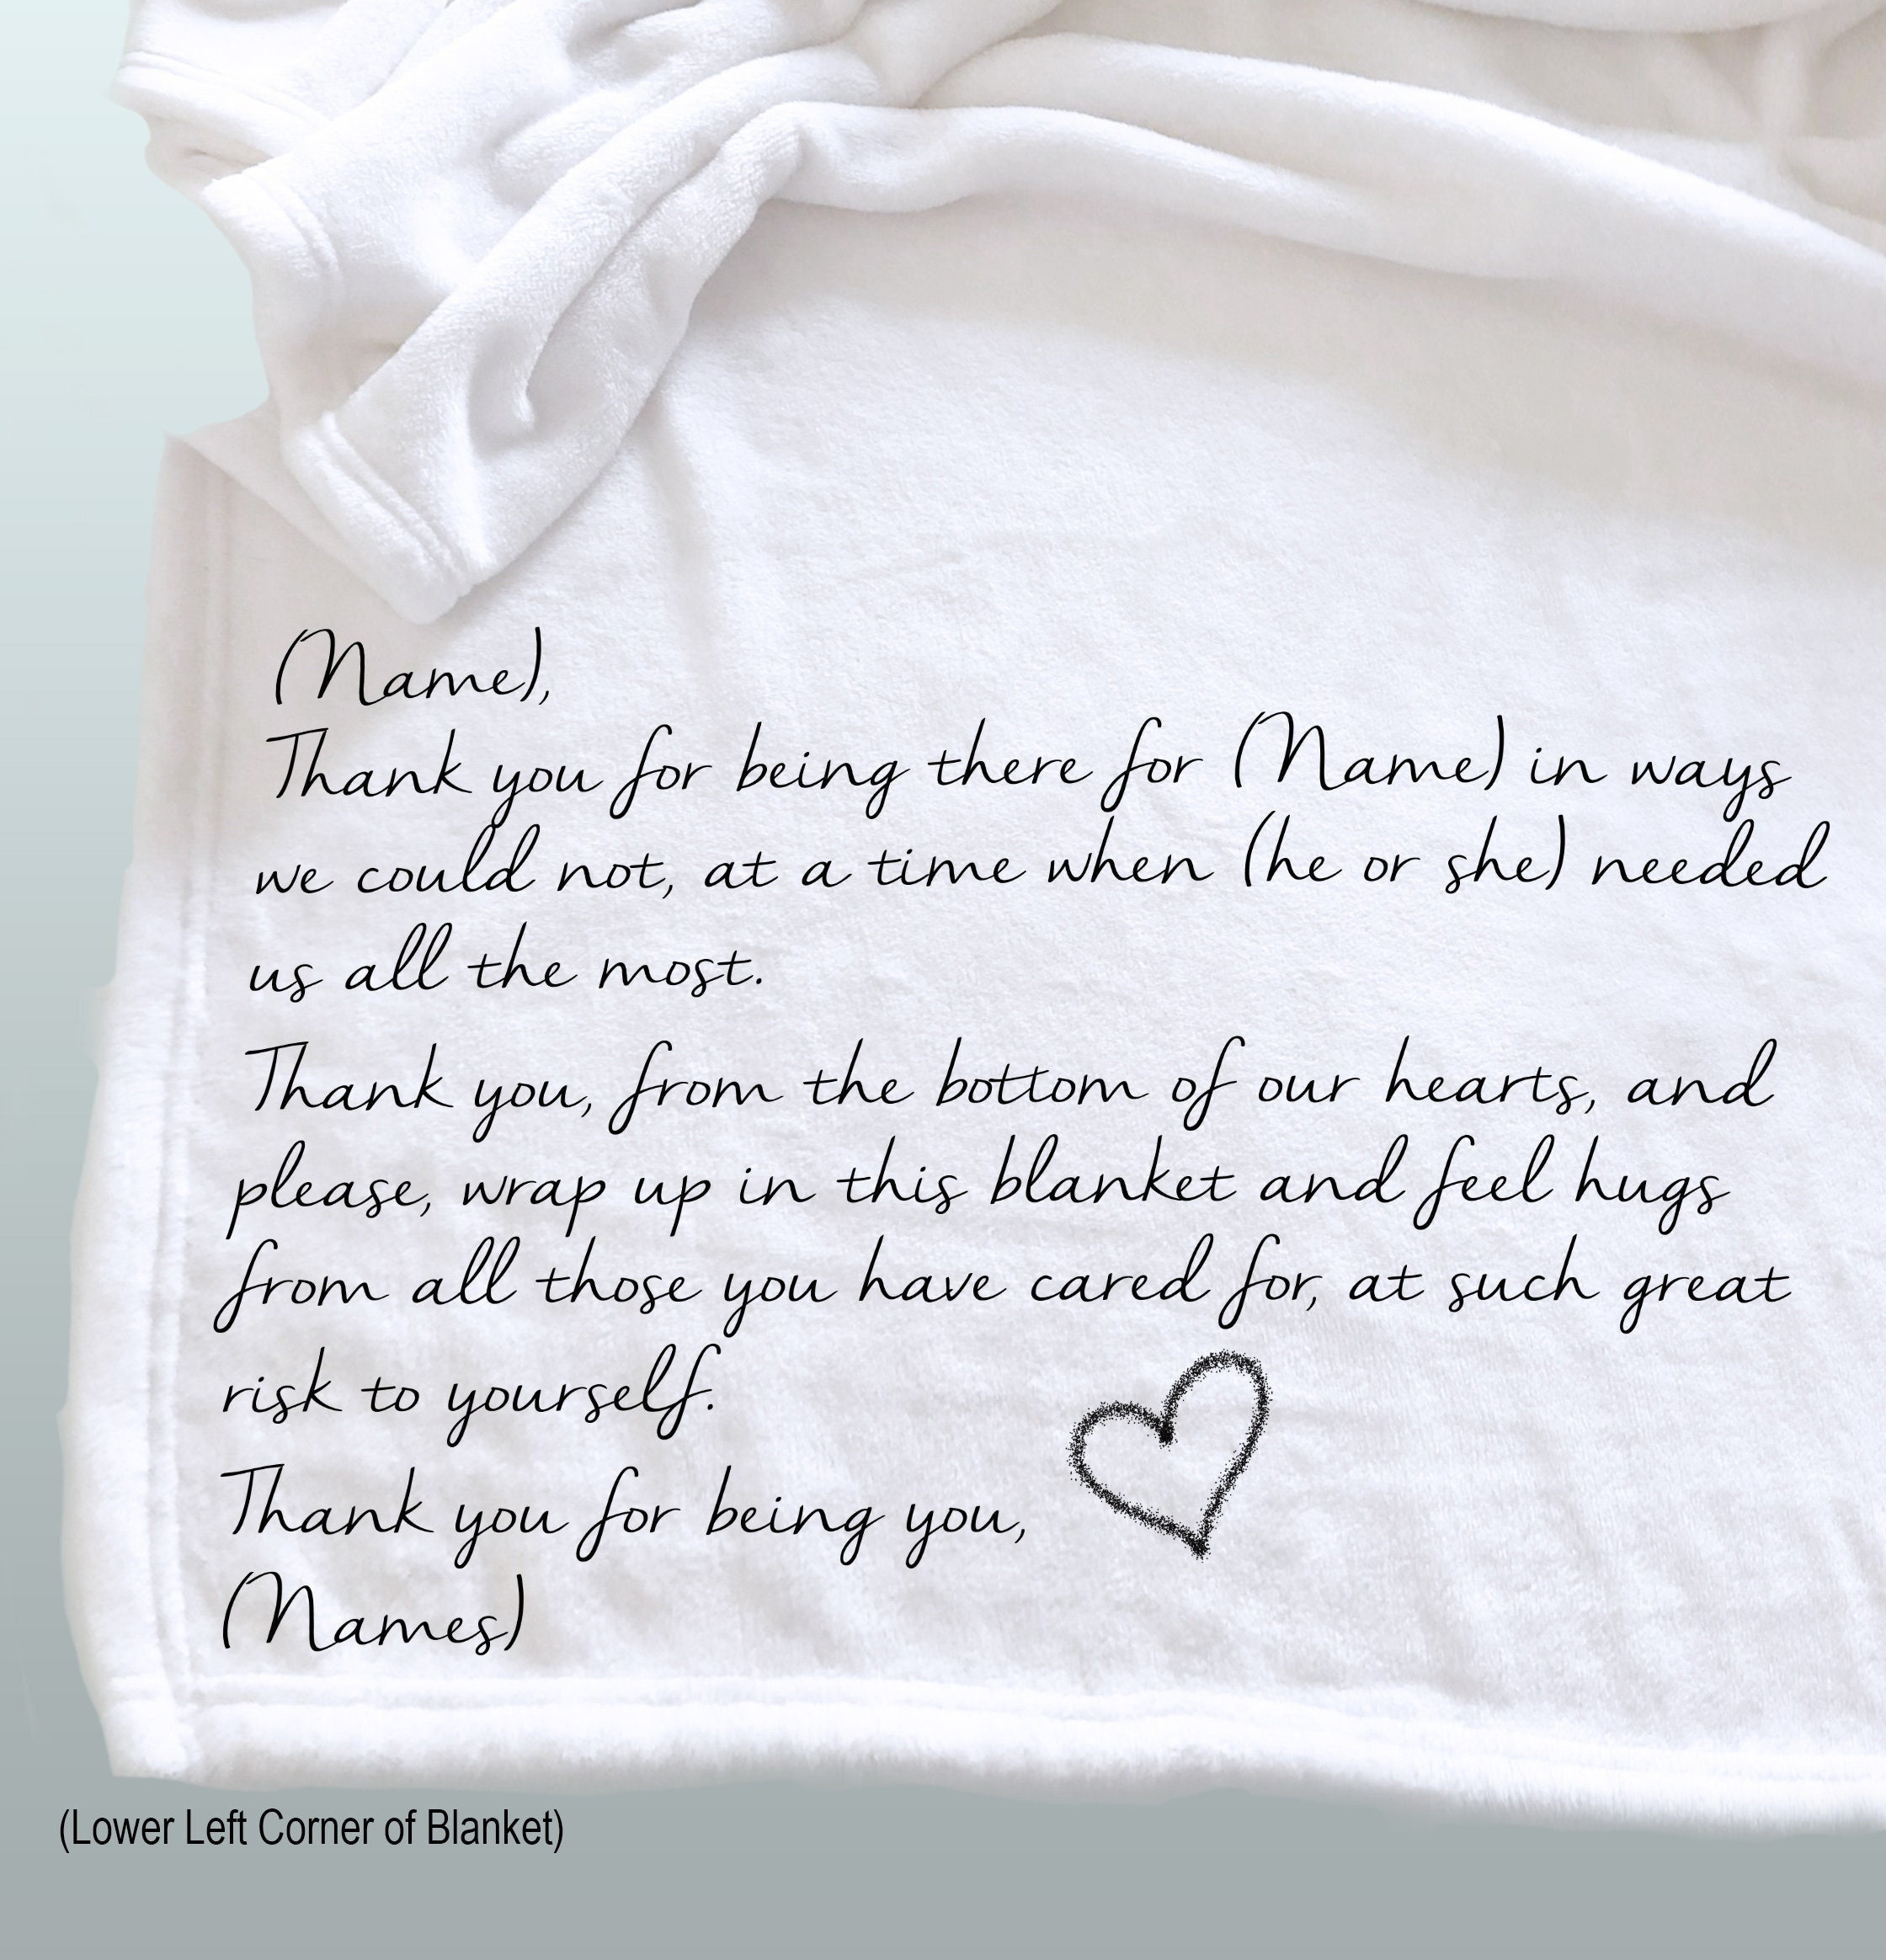 (Name),
Thank you for being there for (Name) in ways
we could not, at a time when (he or she) needed
us all the most.
Thank you, from the bottom of our hearts, and
please, wrap up in this blanket and feel hugs
from all those you have cared for, at such great
risk to yourself.
Thank you for being you,
(Names)
(Lower Left Corner of Blanket)